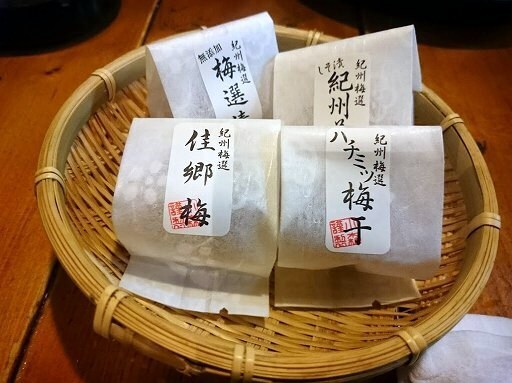 紀州梅選
無添加
梅選
紀州梅選
しそ漬
紀州
紀州梅選
佳郷梅
謹製
紀州梅選
ハチミツ梅干
謹製